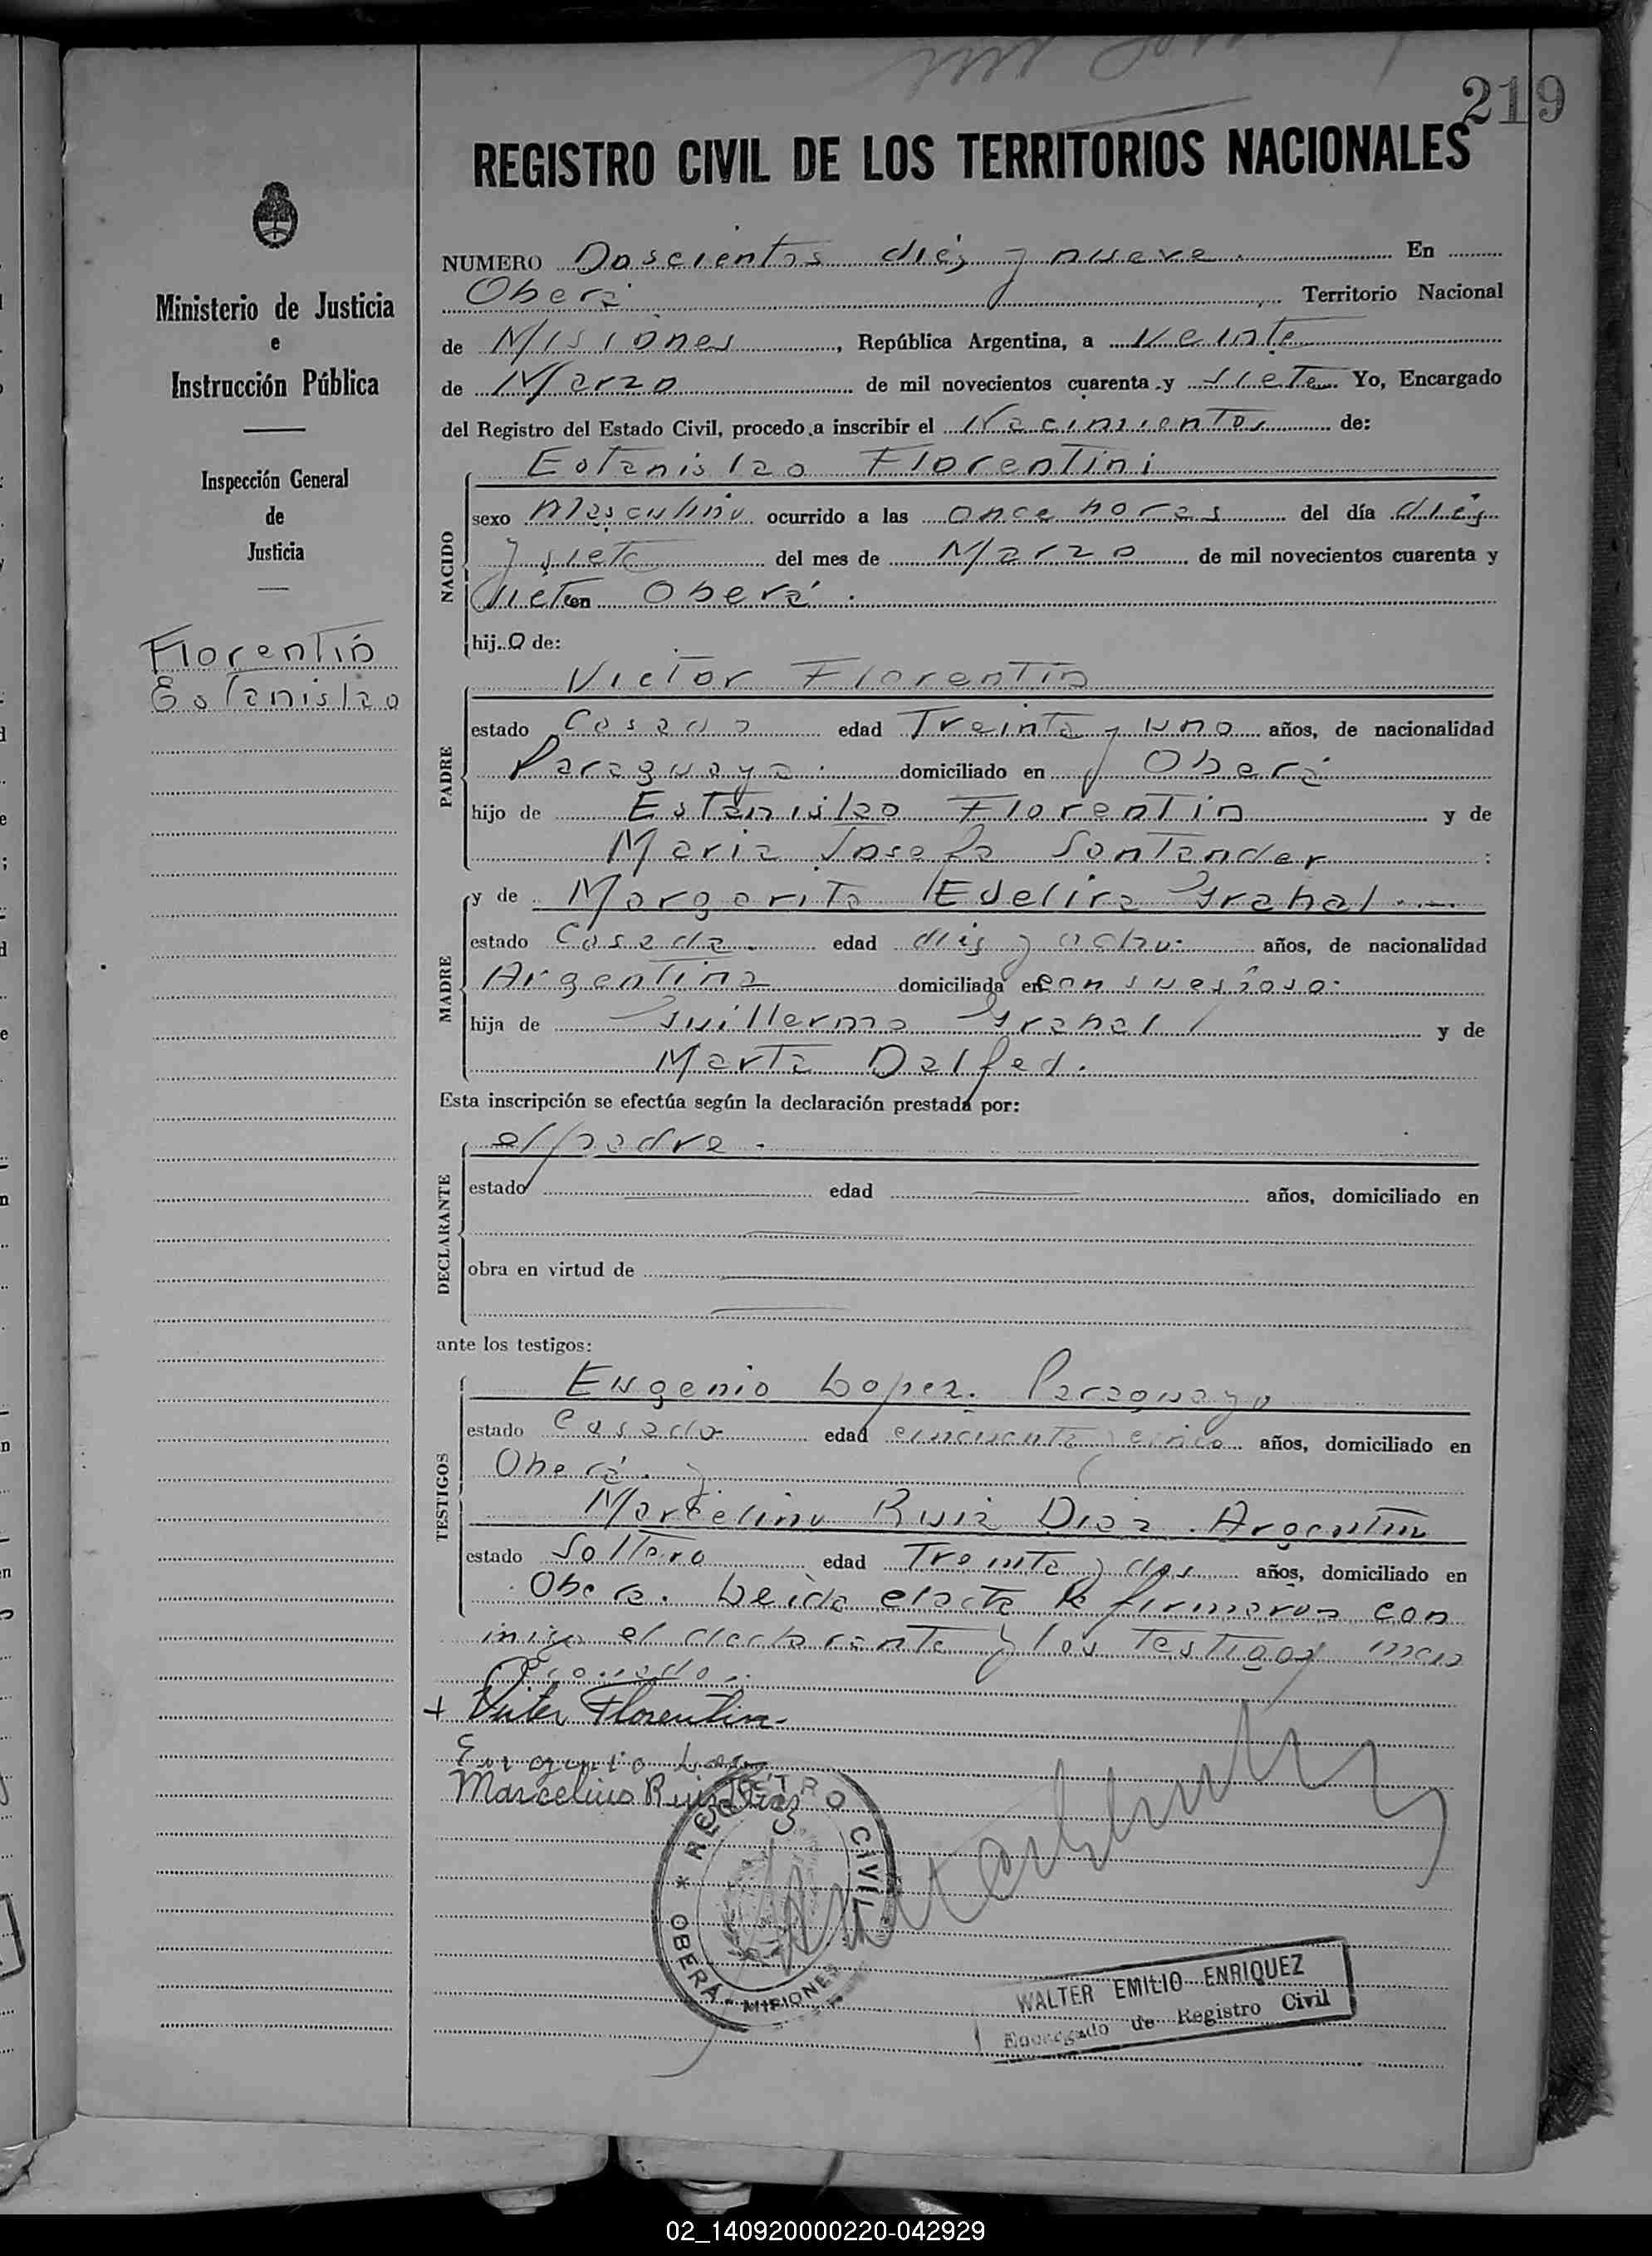 219
REGISTRO CIVIL DE LOS TERRITORIOS NACIONALES
Ministerio de Justicia
e
Instrucción Pública
Inspección General
de
Justicia
Florentín
Estanislao
NUMERO Doscientos diés y nueve. En
Oberá Territorio Nacional
de Misiones, República Argentina, a Veinte
de Marzo de mil novecientos cuarenta y siete. Yo, Encargado
del Registro del Estado Civil, procedo a inscribir el Nacimiento, de:
Estanislao Florentini
NACIDO
sexo Masculino ocurrido a las once horas del día diés
y siete del mes de Marzo de mil novecientos cuarenta y
siete en Oberá.
hijo de:
Victor Florentin
PADRE
estado Casado edad Treinta y uno años, de nacionalidad
Paraguaya. domiciliado en Oberá
hijo de Estanislao Florentin y de
Maria Josefa Santander
MADRE
y de Margarita Edelira Grahal
estado Casada. edad diés y ocho. años, de nacionalidad
Argentina domiciliada en con su esposo.
hija de Guillermo Grahal y de
Marta Dalfed.
Esta inscripción se efectúa según la declaración prestada por:
DECLARANTE
el padre.
estado edad años, domiciliado en
obra en virtud de
ante los testigos:
TESTIGOS
Eugenio Lopez. Paraguayo
estado Casado edad cincuenta y cinco años, domiciliado en
Oberá. y
Marcelino Ruiz Diaz. Argentino
estado Soltero edad Treinta y dos años, domiciliado en
Obera. Leida el acta la firmaron con
migo el declarante y los Testigos men
cionados.
+ Victor Florentin
Eugenio Lopez
Marcelino Ruiz Diaz
REGISTRO CIVIL
OBERÁ - MISIONES
WALTER EMILIO ENRIQUEZ
Encargado de Registro Civil
02_140920000220-042929